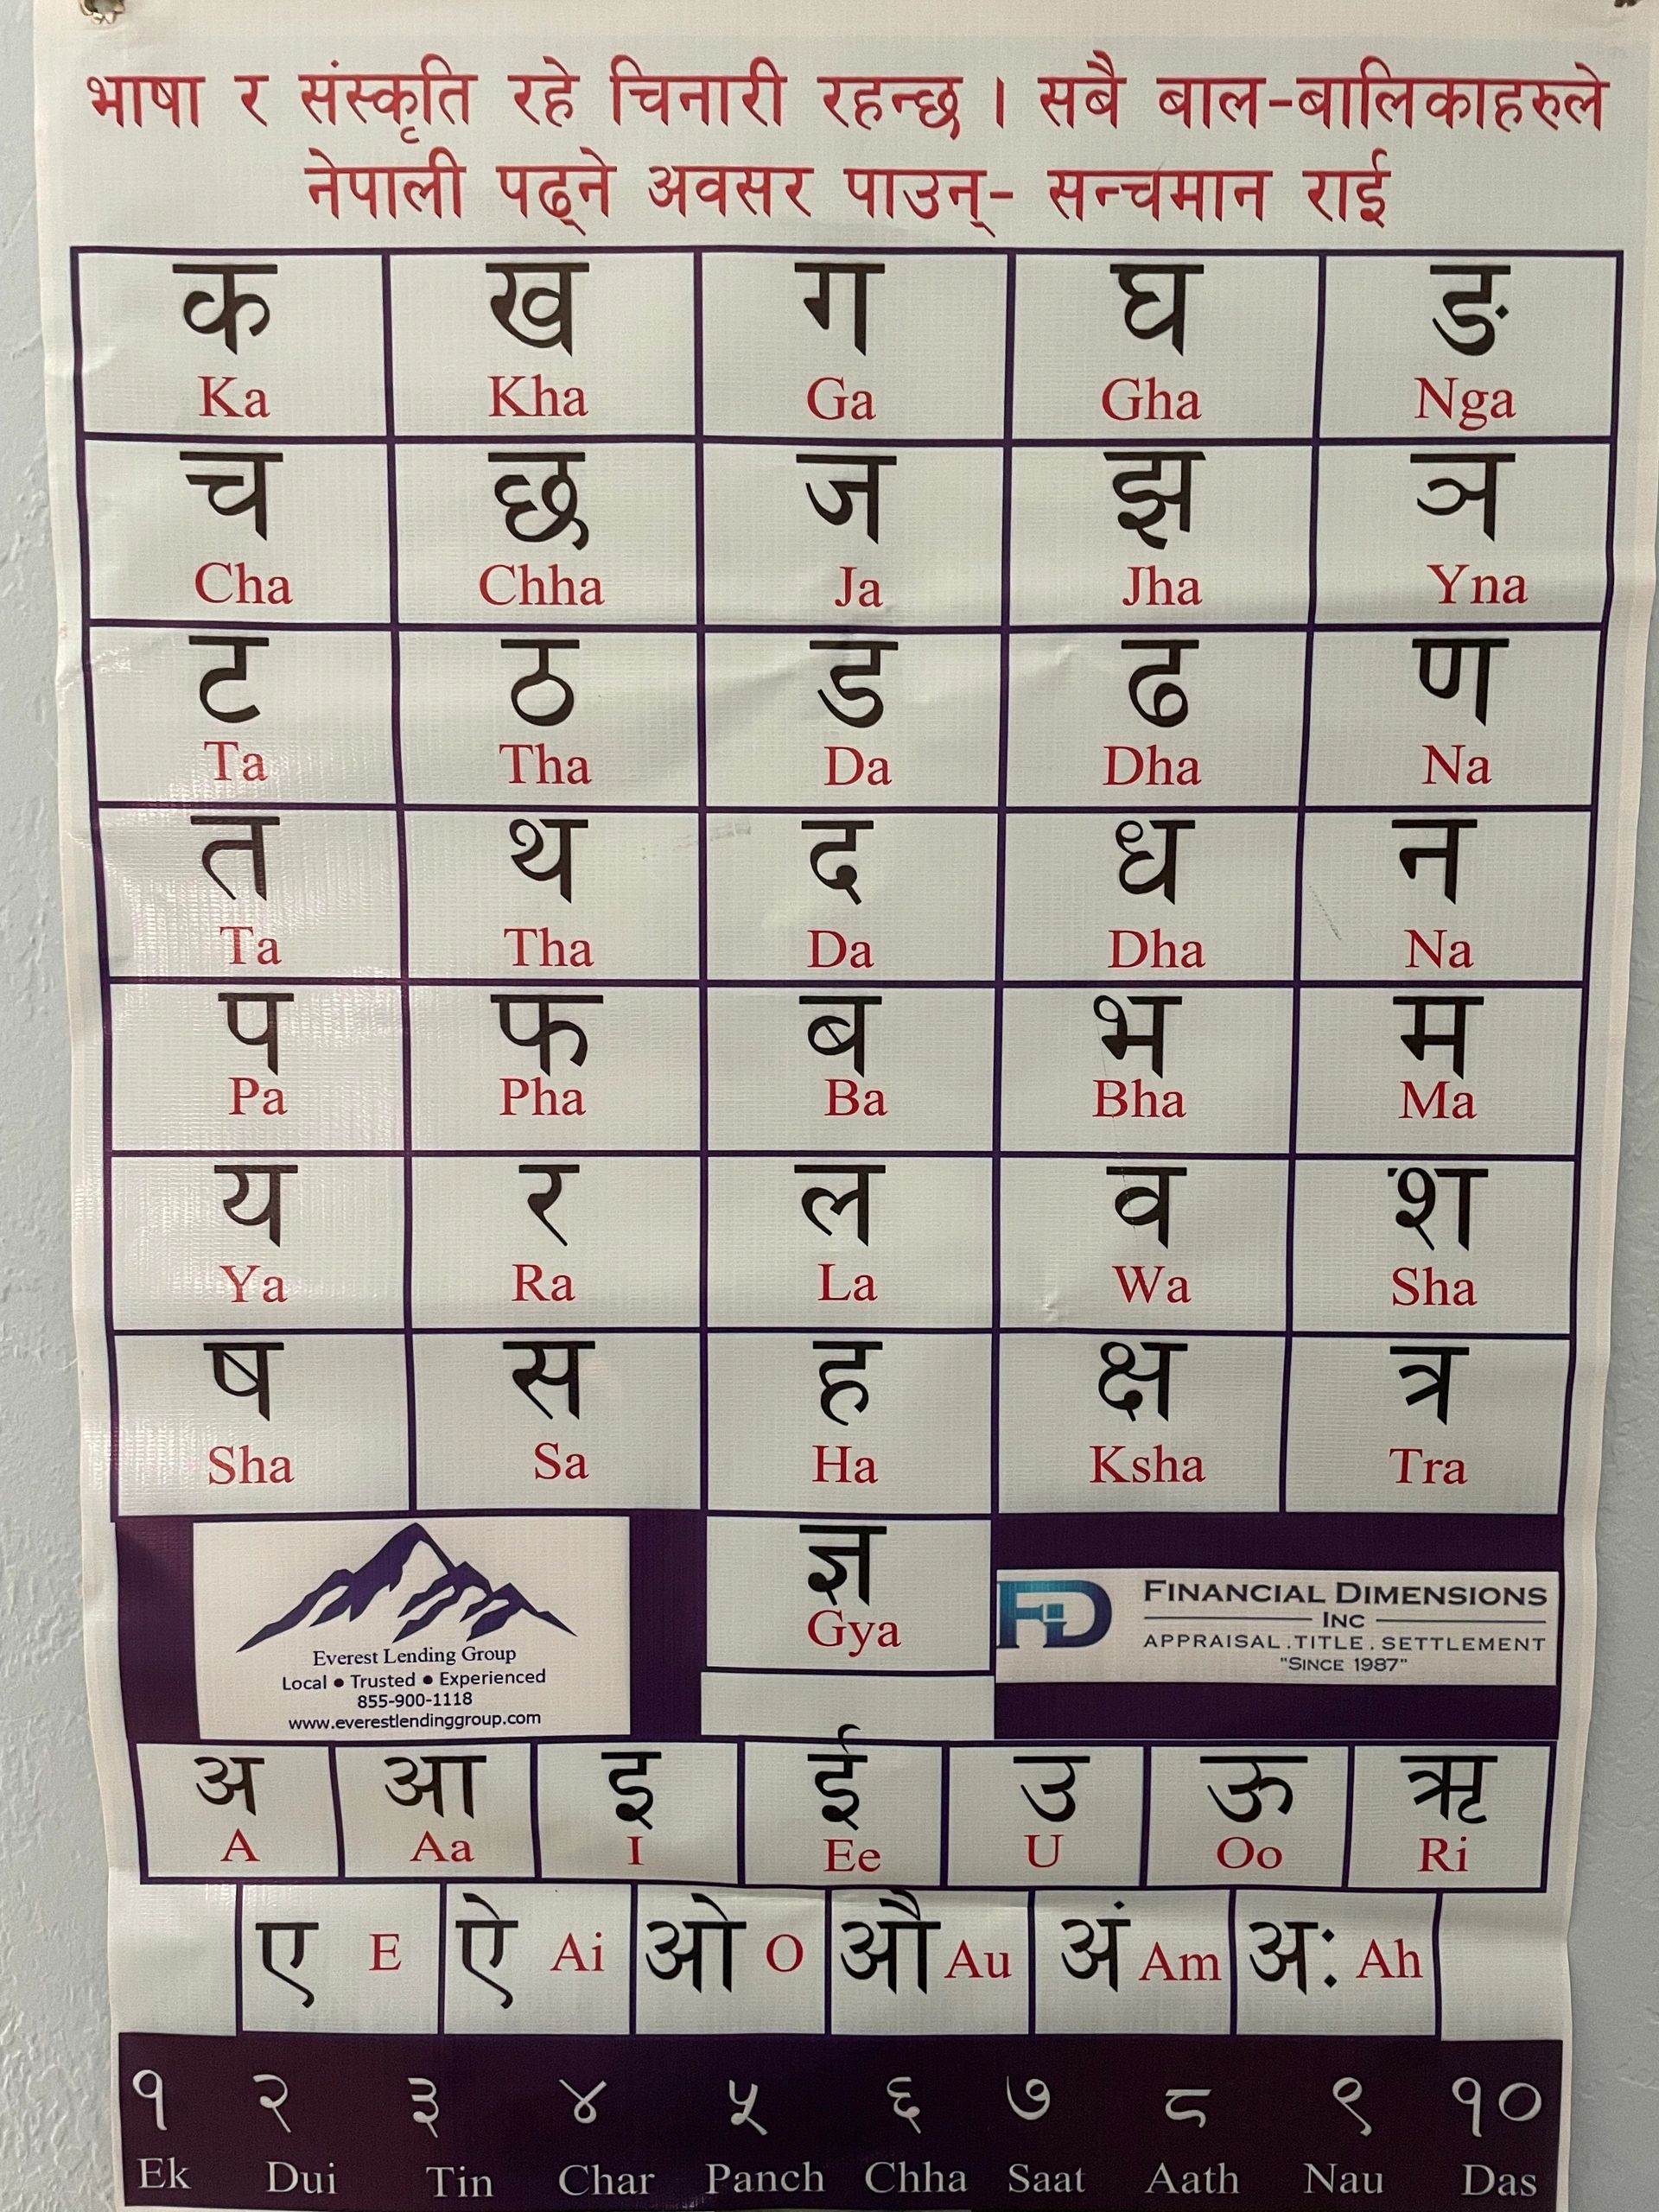 भाषा र संस्कृति रहे चिनारी रहन्छ । सबै बाल-बालिकाहरुले
नेपाली पढ्ने अवसर पाउन्- सन्चमान राई
क ख ग घ ङ
Ka Kha Ga Gha Nga
च छ ज झ ञ
Cha Chha Ja Jha Yna
ट ठ ड ढ ण
Ta Tha Da Dha Na
त थ द ध न
Ta Tha Da Dha Na
प फ ब भ म
Pa Pha Ba Bha Ma
य र ल व श
Ya Ra La Wa Sha
ष स ह क्ष त्र
Sha Sa Ha Ksha Tra
ज्ञ
Gya
Everest Lending Group
Local • Trusted • Experienced
855-900-1118
www.everestlendinggroup.com
FD
FINANCIAL DIMENSIONS
INC
APPRAISAL . TITLE . SETTLEMENT
"SINCE 1987"
अ आ इ ई उ ऊ ऋ
A Aa I Ee U Oo Ri
ए E ऐ Ai ओ O औ Au अं Am अः Ah
१ २ ३ ४ ५ ६ ७ ८ ९ १०
Ek Dui Tin Char Panch Chha Saat Aath Nau Das